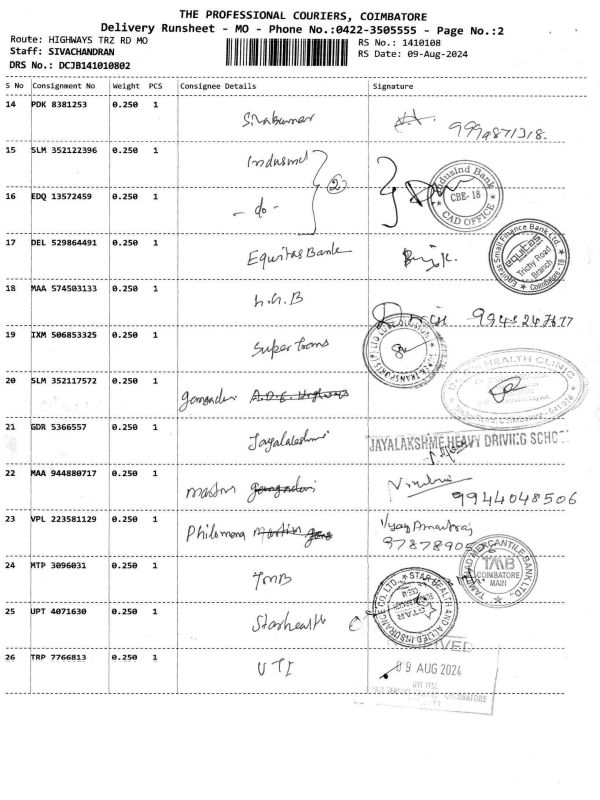 THE PROFESSIONAL COURIERS, COIMBATORE
Delivery Runsheet - MO - Phone No.:0422-3505555 - Page No.:2
Route: HIGHWAYS TRZ RD MO
Staff: SIVACHANDRAN
DRS No.: DCJB141010802
RS No.: 1410108
RS Date: 09-Aug-2024
S No Consignment No Weight PCS Consignee Details Signature
14 PDK 8381253 0.250 1 Sivakumar
15 SLM 352122396 0.250 1 Indusind
2
IndusInd Bank
CBE-18
CAD OFFICE
16 EDQ 13572459 0.250 1 - do -
17 DEL 529864491 0.250 1 Equitas Bank
Equitas Small Finance Bank Ltd
equitas
Trichy Road
Branch
Coimbatore - 18
18 MAA 574503133 0.250 1
19 IXM 506853325 0.250 1 Super Trans
20 SLM 352117572 0.250 1
HEALTH CLINIC
21 GDR 5366557 0.250 1 Jayalakshmi
JAYALAKSHME HEAVY DRIVING SCHO
22 MAA 944880717 0.250 1 Martin
9944048506
23 VPL 223581129 0.250 1 Philomena
Vijay Amaltraj
97878905
24 MTP 3096031 0.250 1 TMB
TAMILNAD MERCANTILE BANK LTD.
TMB
COIMBATORE
MAIN
25 UPT 4071630 0.250 1 Starhealth
STAR HEALTH AND ALLIED INSURANCE CO. LTD.
STAR
26 TRP 7766813 0.250 1 UTI
09 AUG 2024